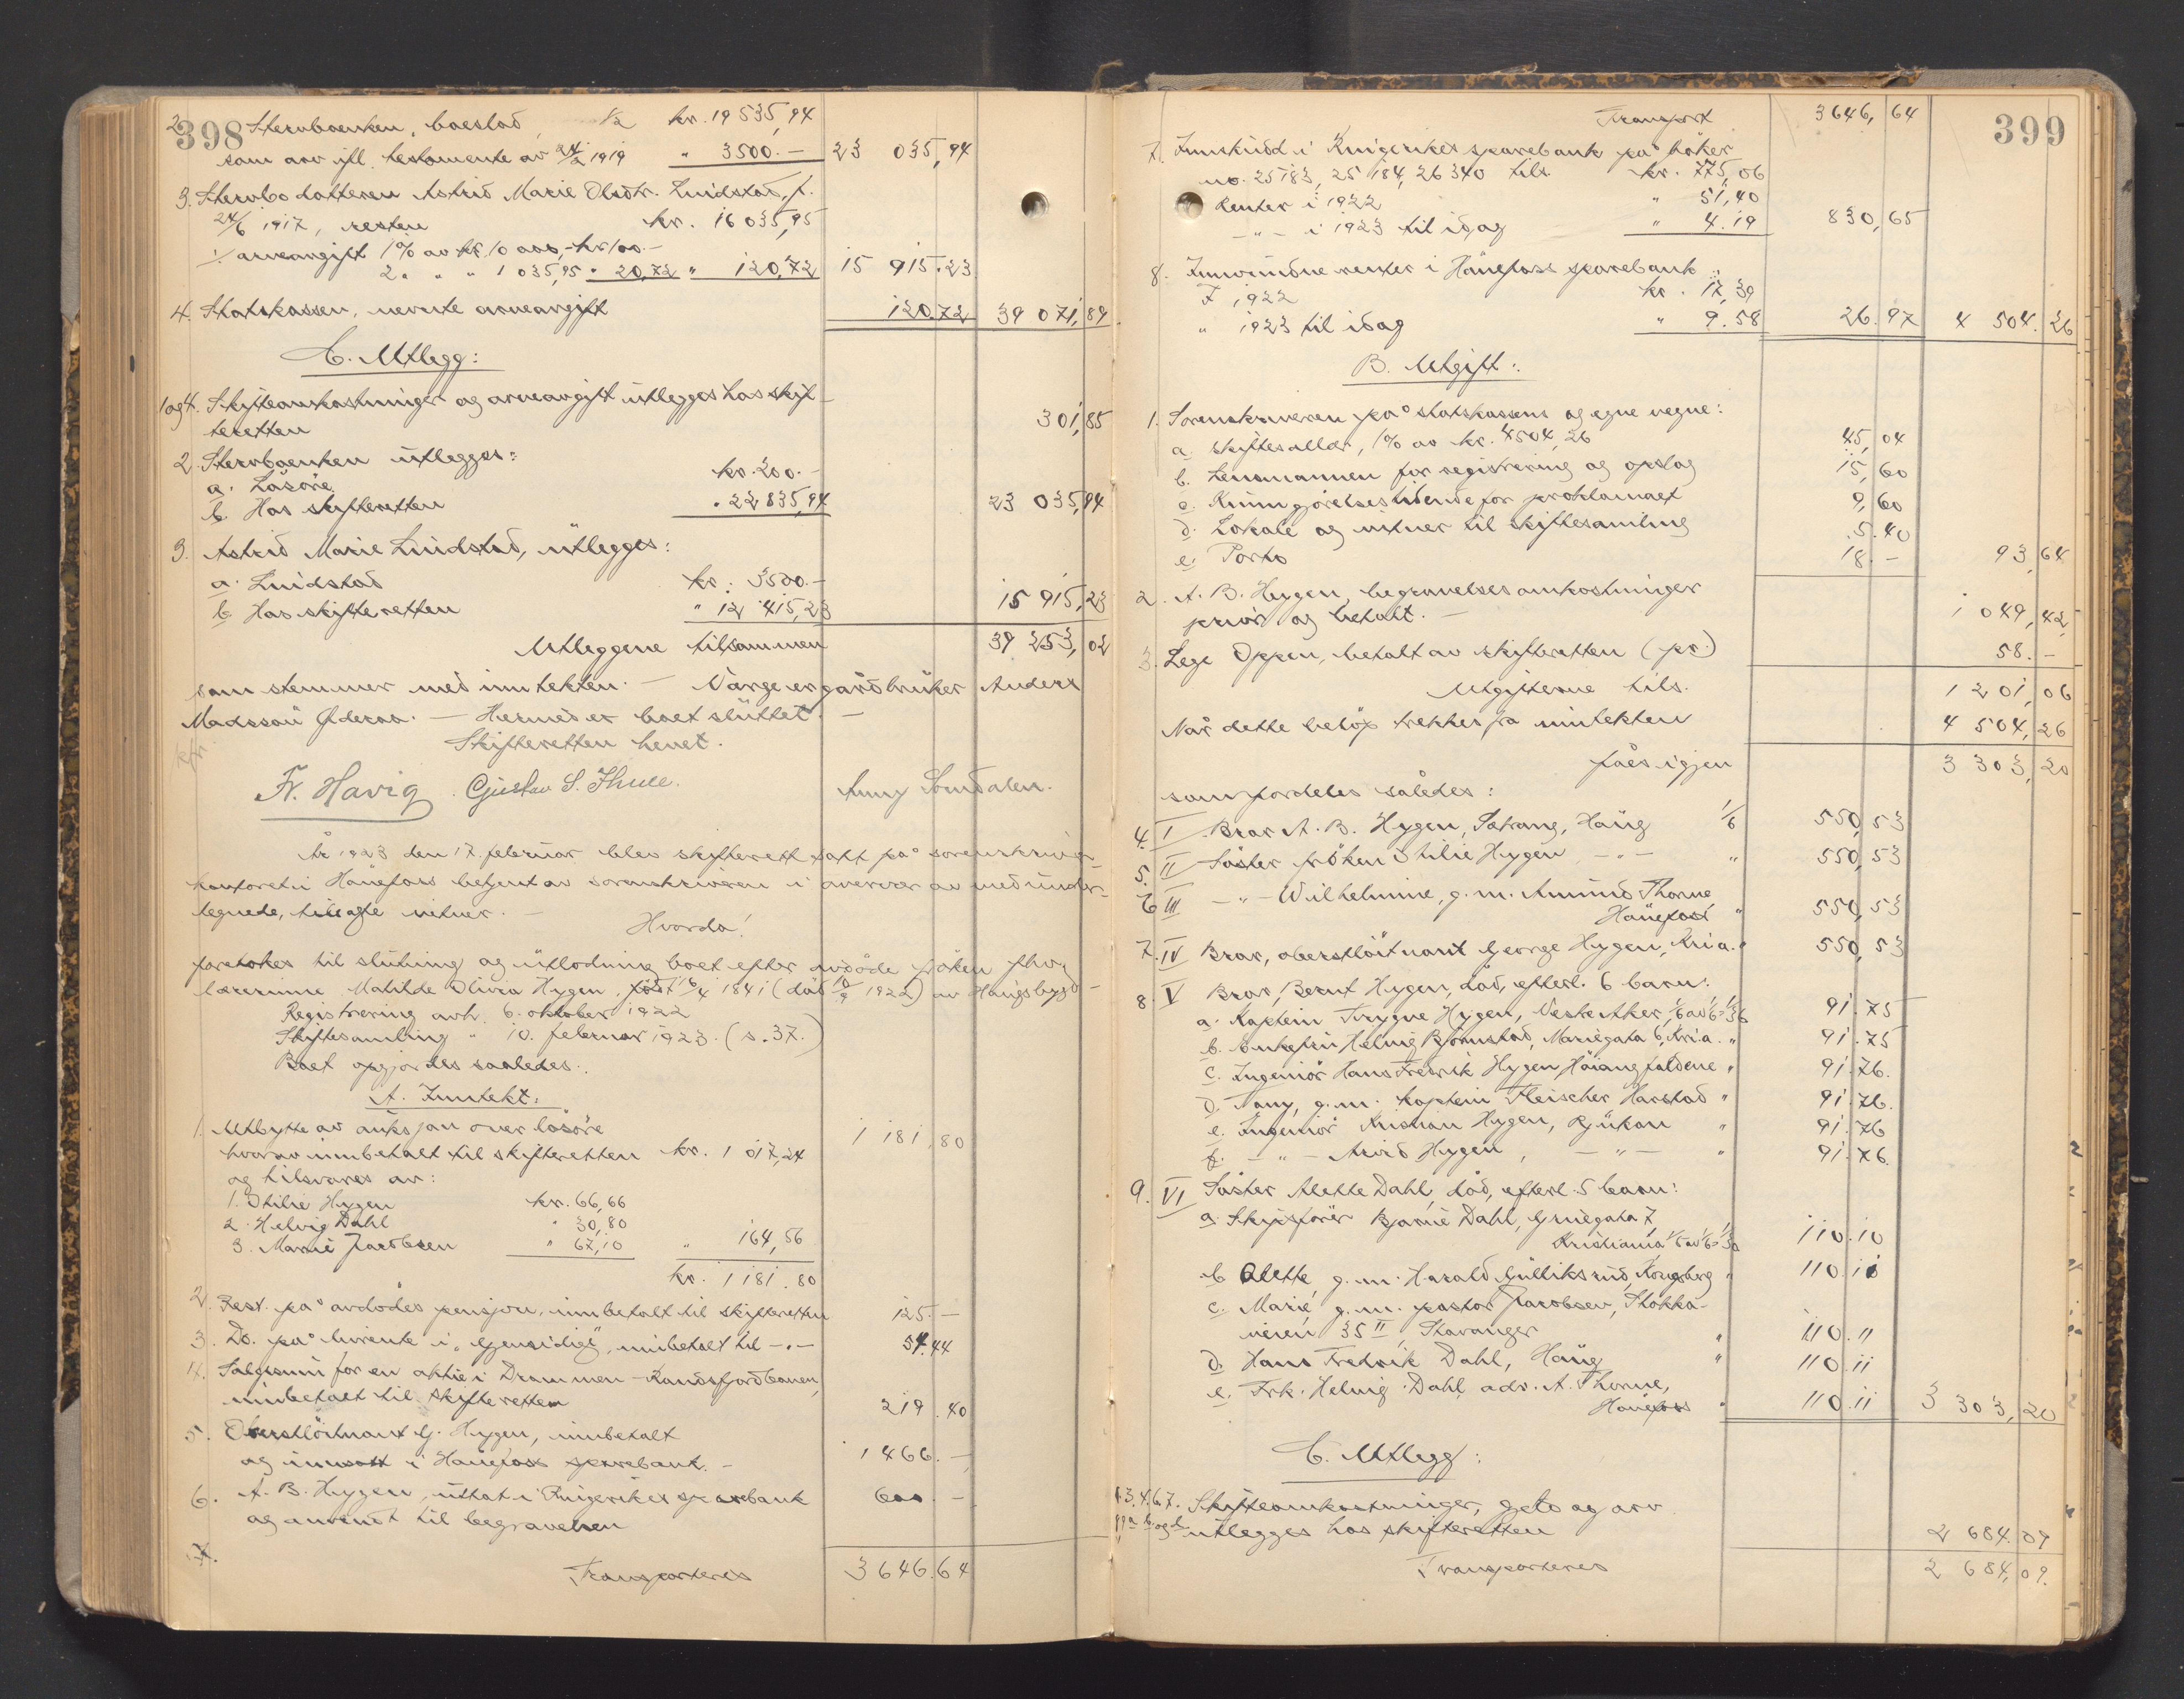 398
2. Stervboenken, boeslod, 1/2 kr. 19 535,94
som arv ifl. testamente av 24/2 1919 " 3500.- 23 035,94
3. Stervbodatteren Astrid Marie Olsdtr. Lindstad, f.
24/6 1917, resten kr. 16 035,95
÷ arveavgift 1% av kr. 10 000,- kr. 100.-
2 " " " 1 035,95 " 20,72 " 120,72 15 915.23
4. Statskassen, nevnte arveavgift 120.72 39 071,89
C. Utlegg:
1 og 4. Skifteomkostninger og arveavgift utlegges hos skif-
teretten 301,85
2. Stervboenken utlegges:
a. Lösöre kr. 200.-
b. Hos skifteretten " 22 835,94 23 035,94
3. Astrid Marie Lindstad, utlegges:
a. Lindstad kr. 3500.-
b. Hos skifteretten " 12 415,23 15 915,23
Utleggene tilsammen 39 253,02
som stemmer med inntekten. - Værge er gårdbruker Anders
Madsson . - Hermed er boet sluttet. -
Skifteretten hevet.
Fr. Havig. Gustav S. Thue. Anny
År 1923 den 17. februar blev skifterett satt på sorenskriver-
kontoret i Hönefoss betjent av sorenskriveren i overvær av med under-
tegnede, tiltagte vitner. -
Hvorda!
foretokes til slutning og utlodning boet efter avdöde fröken fhv.
lærerinne Matilde Olivia Hygen, född 16/4 1841 (död 10/9 1922) av Haugsbygd -
Registrering avh. 6. oktober 1922
Skiftesamling " 10. februar 1923. (s. 37.)
Boet opgjordes saaledes:
A. Inntekt:
1. Utbytte av auksjon over lösöre 1 181,80
hvorav innbetalt til skifteretten kr. 1 017,24
og tilsvares av:
1. Otilie Hygen kr. 66,66
2. Helvig Dahl " 30,80
3. Marie Jacobsen " 67,10 " 164,56
kr. 1 181.80
2. Rest på avdödes pensjon, innbetalt til skifteretten 125.-
3. Do. på livrente i "Gjensidige", innbetalt til -"- 54.44
4. Salgssum for en aktie i Drammen-Randsfjordbanen,
innbetalt til skifteretten 219.40
5. Oberstlöitnant G. Hygen, innbetalt
og innsatt i Hönefoss sparebank. - 1 466.-
6. A. B. Hygen, uttat i Ringerikes sparebank 600.-
og anvendt til begravelsen
7.
Transporteres 3646.64
399
Transport 3646,64
7. Innskudd i Ringerikes sparebank på böker
no. 25183, 25184, 26340 tils. kr. 775,06
Renter i 1922 " 51,40
-"- i 1923 til idag " 4.19 830,65
8. Innvundne renter i Hönefoss sparebank:
I 1922 kr. 17,39
" 1923 til idag " 9.58 26.97 4 504.26
B. Utgift:
1. Sorenskriveren på statskassens og egne vegne:
a. Skiftesallær, 1% av kr. 4504,26 45,04
b. Lensmannen for registrering og opslag 15,60
c. Kunngjörelsestidende for proklamaet 9,60
d. Lokale og vitner til skiftesamling 5.40
e. Porto 18.- 93,64
2. A. B. Hygen, begravelsesomkostninger
prior. og betalt. - 1 049,42
3. Lege Oppen, betalt av skifteretten (pr.) 58.-
Utgifterne tils. 1 201,06
Når dette belöp trekkes fra inntekten 4 504,26
fåes igjen 3 303,20
som fordeles således:
4. I Bror A. B. Hygen, Setrang, Haug 1/6 550,53
5. II Söster fröken Otilie Hygen -"- " 550,53
6. III -"- Wilhelmine, g.m. Amund Thorne
Hönefoss " 550,53
7. IV Bror, oberstlöitnant George Hygen, Kria. " 550,53
8. V Bror, Bernt Hygen, död, efterl. 6 barn:
a. Kaptein Trygve Hygen, Vestre Aker, 1/6 av 1/6 = 1/36 91.75
b. Enkefru Helvig Björnstad, Mariegata 6, Kria. " 91.75
c. Ingeniör Hans Fredrik Hygen, Höiangfaldene " 91.76.
d. Nany, g.m. kaptein Fleischer Harstad " 91.76.
e. Ingeniör Kristian Hygen, Rjukan " 91.76
f. -"- Arvid Hygen, -"- " 91.76.
9. VI Söster Alette Dahl, död, efterl. 5 barn:
a. Skipsförer Bjarne Dahl, Griegata 7,
Kristiania, 1/5 av 1/6 = 1/30 110.10
b. Alette, g.m. Harald Gulliksrud, Kongsberg " 110.10
c. Marie, g.m. pastor Jacobsen, Stokka-
veien 35 II, Stavanger " 110.11
d. Hans Fredrik Dahl, Haug " 110.11
e. Frk. Helvig Dahl adr. A. Thorne,
Hönefoss " 110.11 3 303,20
C. Utlegg:
1.3.4.6.7. Skifteomkostninger, gjeld og arv
utlegges hos skifteretten 2 684.09
Transporteres 2 684,09.